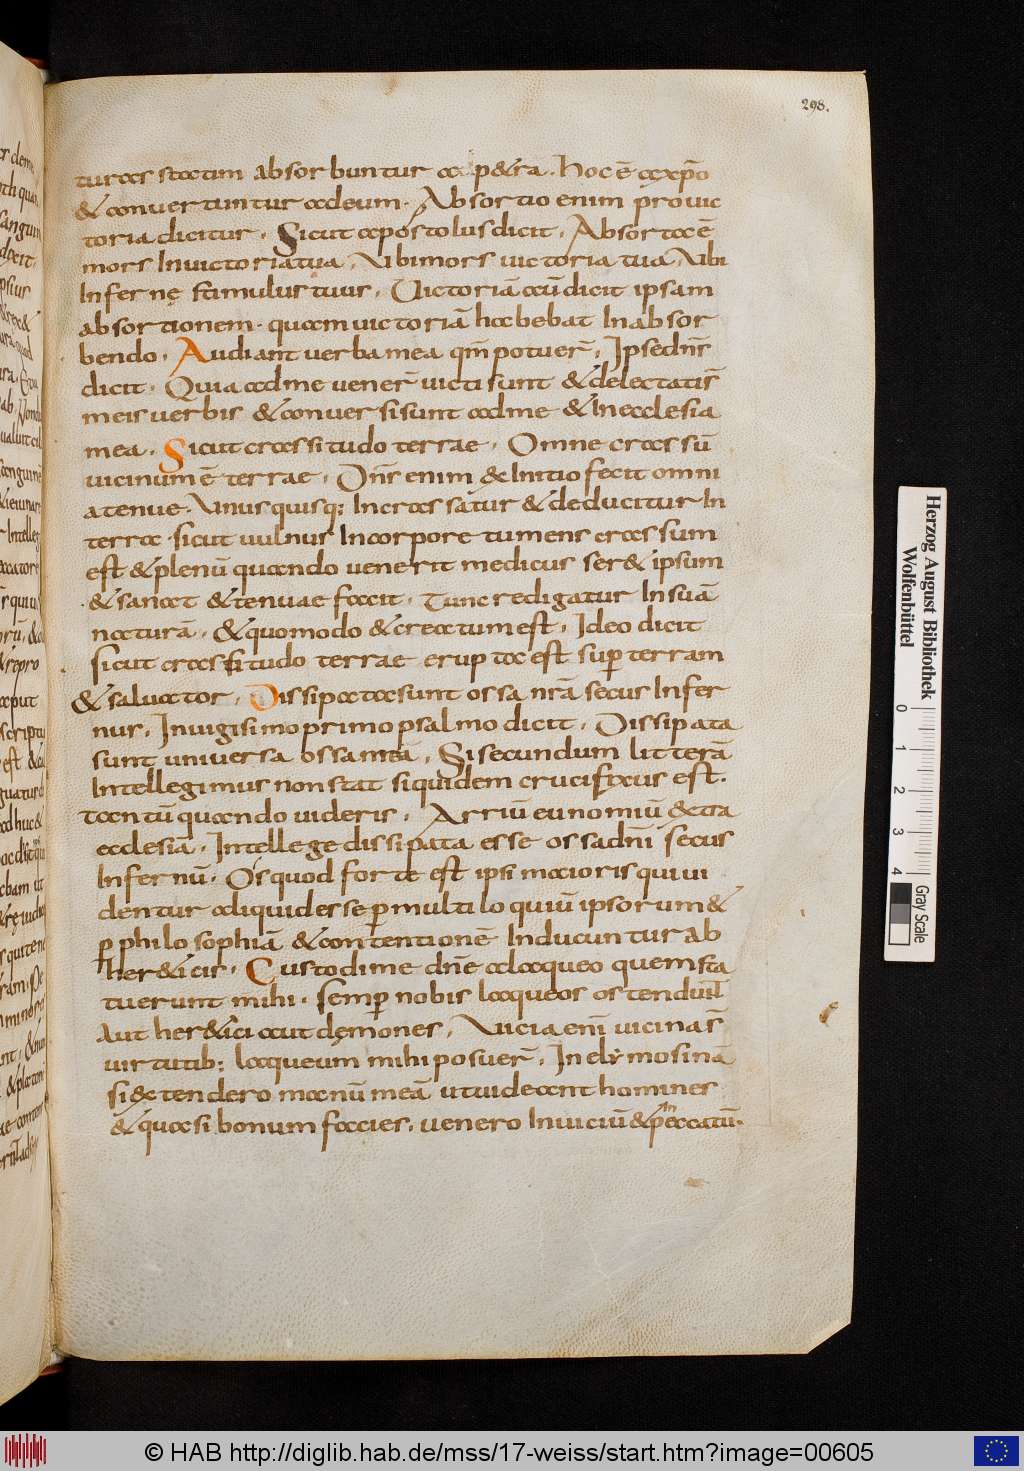 298.
turas statim absorbuntur a petra. Hoc ē a xp̄o
& convertuntur ad deum. Absortio enim pro vic
toria dicitur. Sicut apostolus dicit. Absorta ē
mors In victoria tua. Ubi mors victoria tua. Ubi
Inferne stimulus tuus. Victoriā aū dicit ipsam
absortionem. quam victoriā habebat In absor
bendo. Audiant verba mea qm̄ potuer̄. Ipse dn̄s
dicit. Quia ad me vener̄ victi sunt & delectati s̄
meis verbis & conversi sunt ad me & In ecclesia
mea. Sicut crassitudo terrae. Omne crassū
vicinum ē terrae. Dn̄s enim & Initio fecit omni
a tenue. Unusquisq; Incrassatur & deducitur In
terra. sicut vulnus In corpore tumens crassum
est & plenū quando venerit medicus ser& ipsum
& sanat & tenuae facit. Tunc redigatur In suā
naturā. & quomodo & creatum est. Ideo dicit
sicut crassitudo terrae erupta est sup terram
& salvator. Dissipata sunt ossa nr̄a secus Infer
nus. In vigisimo primo psalmo dicit. Dissipata
sunt universa ossa mea. Si secundum litterā
Intellegimus non stat siquidem crucifixus est.
tantū quando videris. Arriū eunomiū & tra
ecclesiā. Intellege dissipata esse ossa dn̄i secus
Infernū. Os quod forte est ipsi maioris qui vi
dentur aliquid esse p multiloquiū ipsorum &
p philosophiā & contentionē Inducuntur ab
her&icis. Custodi me dn̄e a laqueo quem sta
tuerunt mihi. semp nobis laqueos ostendunt
Aut her&ici aut demones. Vicia enī vicina s̄
virtutib; laqueum mihi posuer̄. In elymosinā
si extendero manū meā ut videant homines
& quasi bonum facies. venero In viciū & In peccatū.
Herzog August Bibliothek
Wolfenbüttel
0 1 2 3 4
Gray Scale
© HAB http://diglib.hab.de/mss/17-weiss/start.htm?image=00605